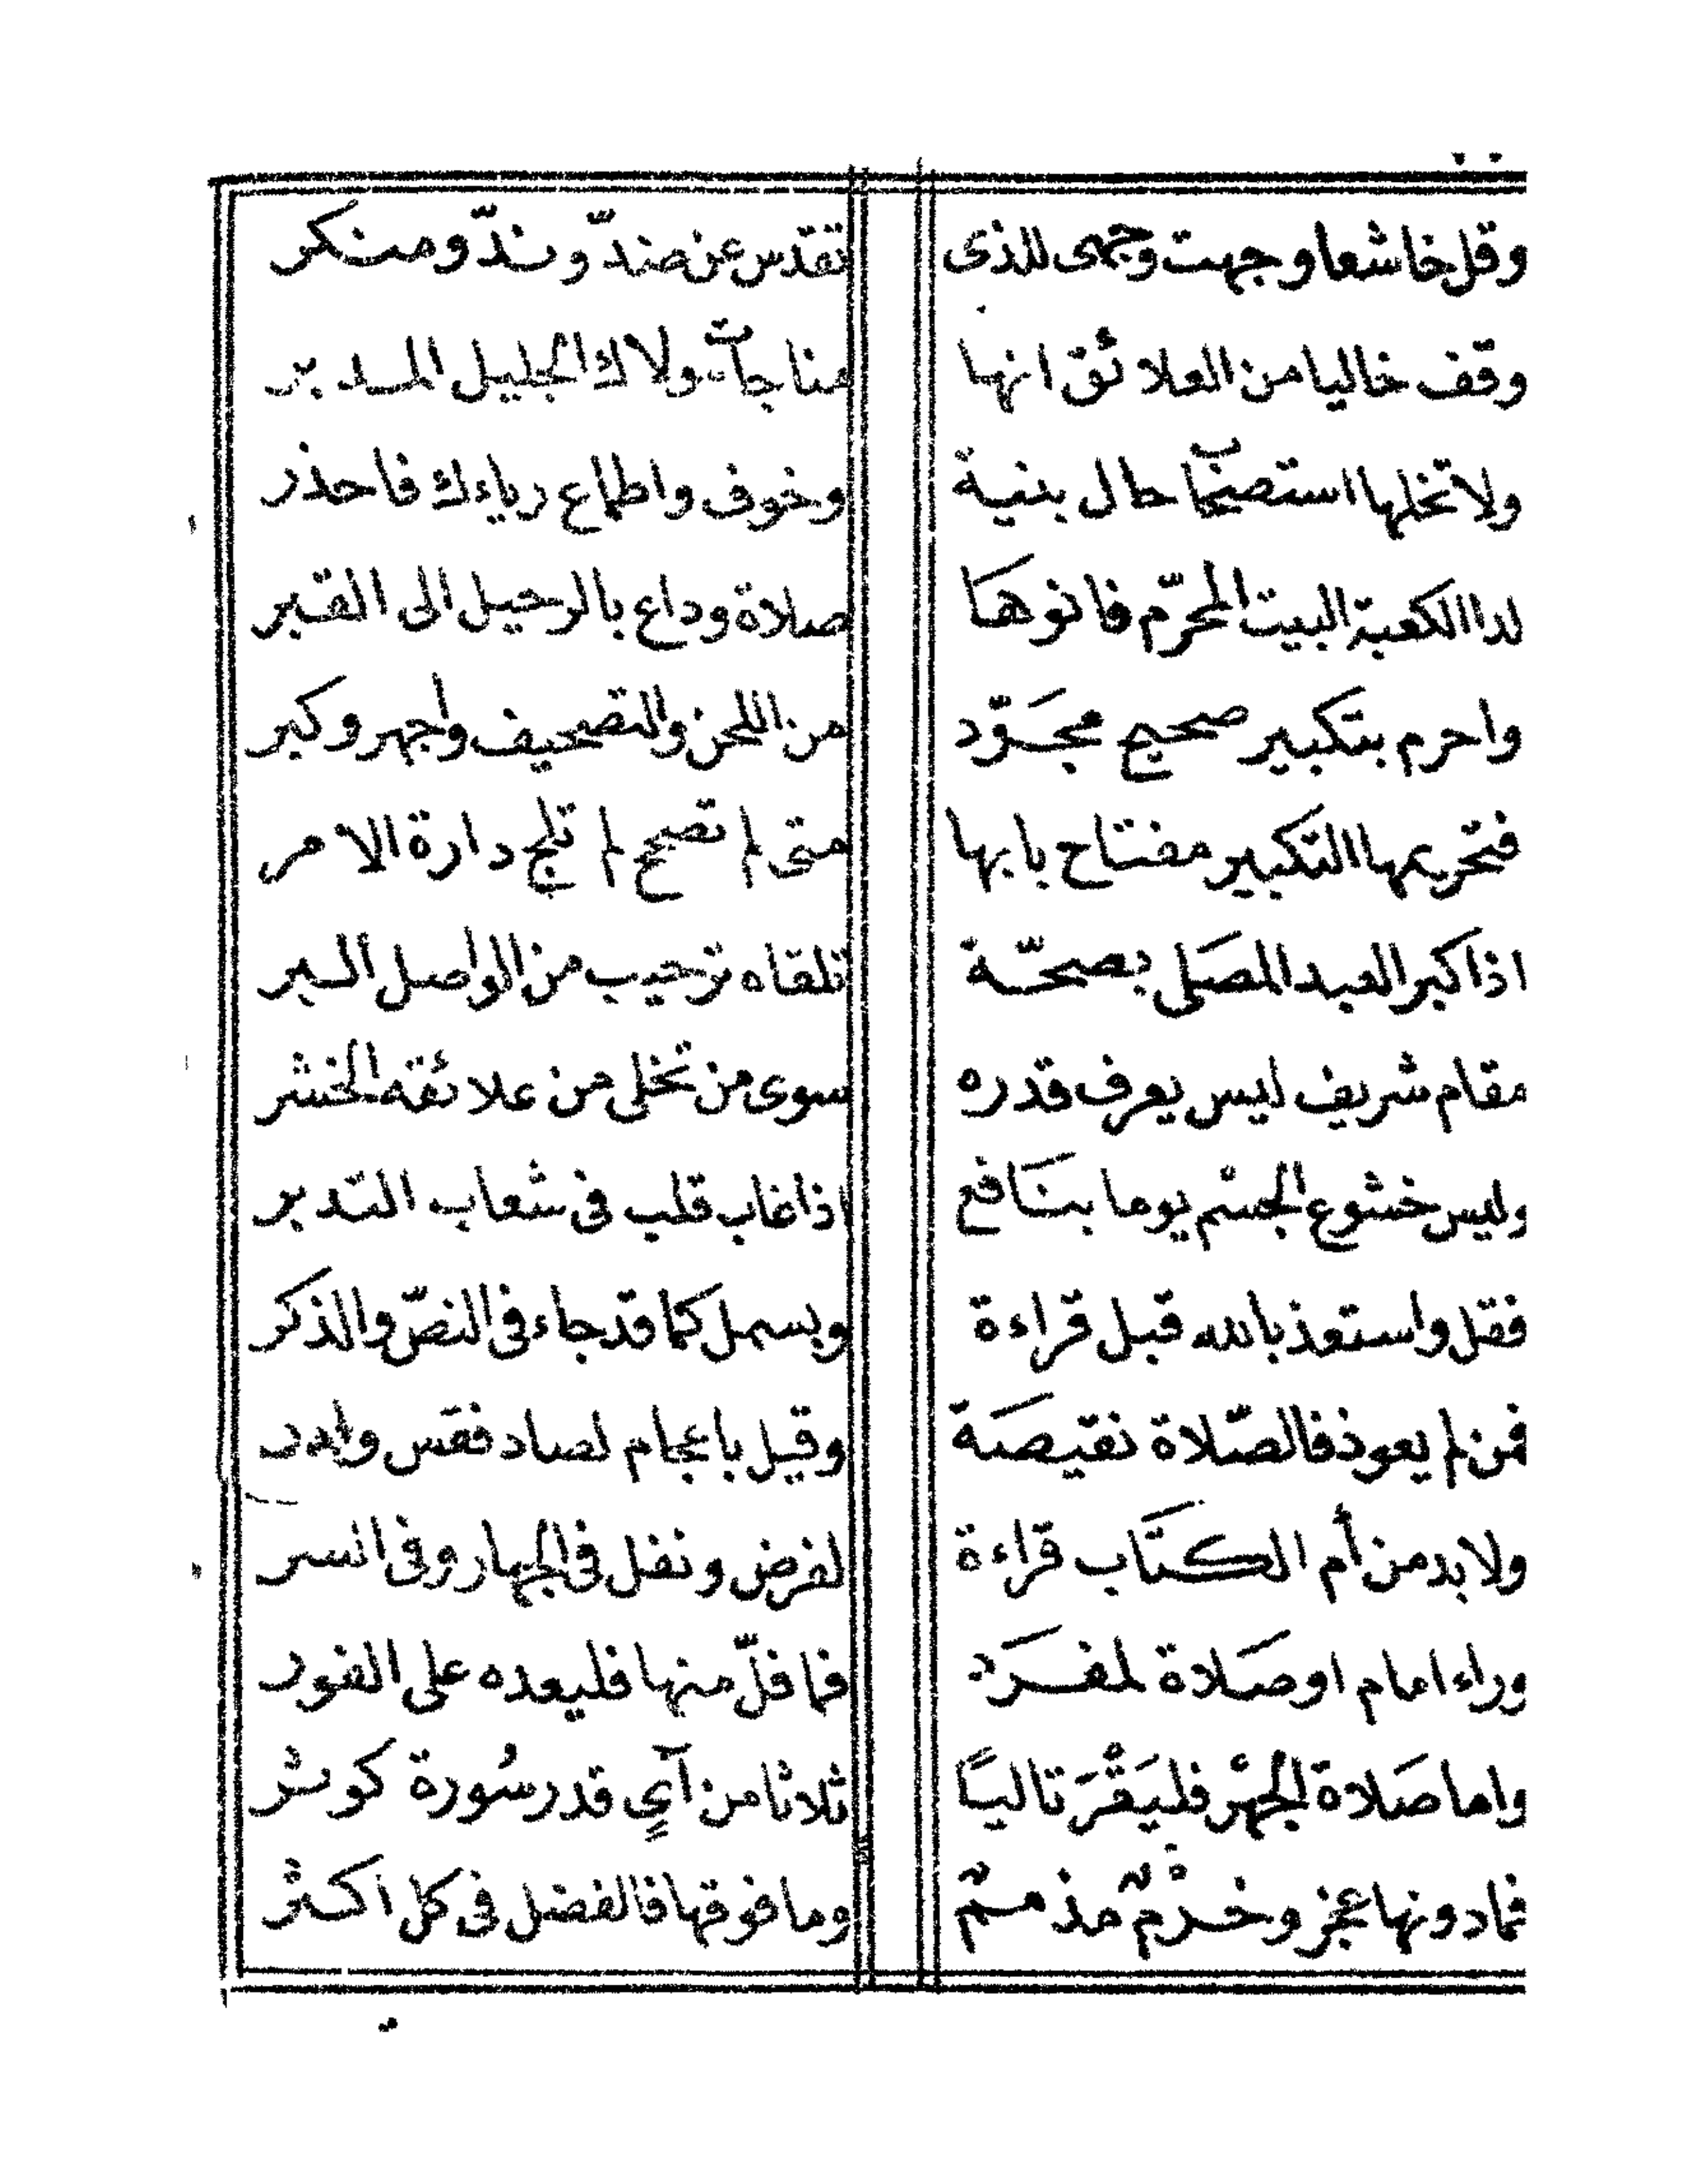 وقل خاشعا وجهت وجهى للذى تقدس عن ضدّ وندّ ومنكر
وقف خاليا من العلائق انها مناجات مولاك الجليل المدبر
ولا تخلها استصحاب حال بنية وخوف واطماع رياءك فاحذر
لدا الكعبة البيت المحرّم فانوها صلاة وداع بالرحيل الى القبر
واحرم بتكبير صحيح مجَوّد من اللحن والتصحيف واجهر وكبر
فتحريمها التكبير مفتاح بابها متى لم تصحح لم تلج دارة الامر
اذا كبر العبد المصَلى بصحّة تلقاه ترحيب من الواصل البر
مقام شريف ليس يعرف قدره سوى من تخلى من علائقه الخشر
وليس خشوع الجسم يوما بنَافع اذا غاب قلب فى شعاب التدبر
فقل واستعذ بالله قبل قراءة وبسمل كما قد جاء فى النصّ والذكر
فمن لم يعوذ فالصّلاة نقيصَة وقيل باعجام لصاد فقس
ولا بد من أم الكتَاب قراءة لفرض ونفل فى الجهار وفى السر
وراء امام او صَلاة لمفرَد فما فلّ منها فليعده على الفور
واما صَلاة الجهْر فليَقْرَ تاليًا ثلاثا من آيٍ قدر سُورة كوثر
فما دونها عجز وخرْمٌ مذممٌ وما فوقها فالفضل فى كل اكثر